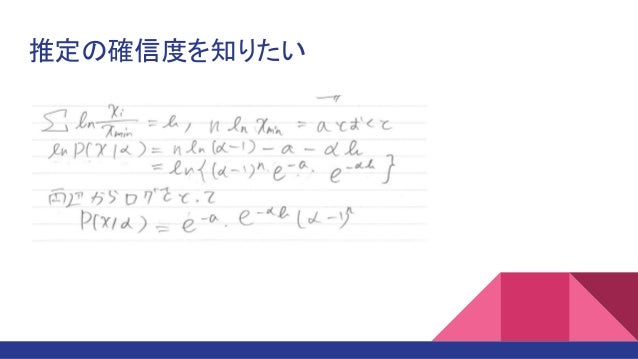 推定の確信度を知りたい
Σ ln xi/xmin = b, n ln xmin = a とおくと
ln P(x|α) = n ln(α-1) - a - αb
= ln{(α-1)^n・e^-a・e^-αb}
両辺からログをとって
P(x|α) = e^-a・e^-αb (α-1)^n